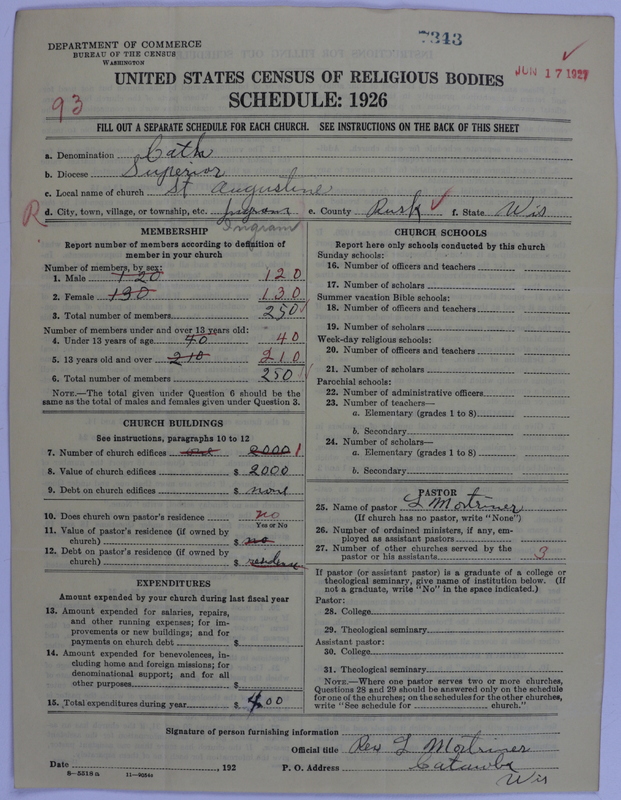 7343
DEPARTMENT OF COMMERCE
BUREAU OF THE CENSUS
WASHINGTON
JUN 17 1927
UNITED STATES CENSUS OF RELIGIOUS BODIES
93
SCHEDULE: 1926
FILL OUT A SEPARATE SCHEDULE FOR EACH CHURCH. SEE INSTRUCTIONS ON THE BACK OF THIS SHEET
a. Denomination Cath
b. Diocese Superior
c. Local name of church St Augustine
R d. City, town, village, or township, etc. Ingram e. County Rusk f. State Wis
Ingram
MEMBERSHIP
Report number of members according to definition of
member in your church
Number of members, by sex:
1. Male 120 120
2. Female 130 130
3. Total number of members 250
Number of members under and over 13 years old:
4. Under 13 years of age 40 40
5. 13 years old and over 210 210
6. Total number of members 250
NOTE.—The total given under Question 6 should be
same as the total of males and females given under Question 3.
CHURCH BUILDINGS
See instructions, paragraphs 10 to 12
7. Number of church edifices one 2000 1
8. Value of church edifices $ 2000
9. Debt on church edifices $ none
10. Does church own pastor's residence no
Yes or No
11. Value of pastor's residence (if owned by
church) $ no
12. Debt on pastor's residence (if owned by
church) $ residence
EXPENDITURES
Amount expended by your church during last fiscal year
13. Amount expended for salaries, repairs,
and other running expenses; for im-
provements or new buildings; and for
payments on church debt $
14. Amount expended for benevolences, in-
cluding home and foreign missions; for
denominational support; and for all
other purposes $
15. Total expenditures during year $ 400
CHURCH SCHOOLS
Report here only schools conducted by this church
Sunday schools:
16. Number of officers and teachers
17. Number of scholars
Summer vacation Bible schools:
18. Number of officers and teachers
19. Number of scholars
Week-day religious schools:
20. Number of officers and teachers
21. Number of scholars
Parochial schools:
22. Number of administrative officers
23. Number of teachers—
a. Elementary (grades 1 to 8)
b. Secondary
24. Number of scholars—
a. Elementary (grades 1 to 8)
b. Secondary
PASTOR
25. Name of pastor L Mortimer
(If church has no pastor, write "None")
26. Number of ordained ministers, if any, em-
ployed as assistant pastors
27. Number of other churches served by the
pastor or his assistants 3
If pastor (or assistant pastor) is a graduate of a college or
theological seminary, give name of institution below. (If
not a graduate, write "No" in the space indicated.)
Pastor:
28. College
29. Theological seminary
Assistant pastor:
30. College
31. Theological seminary
NOTE.—Where one pastor serves two or more churches,
Questions 28 and 29 should be answered only on the schedule
for one of the churches; on the schedules for the other churches,
write "See schedule for church."
Signature of person furnishing information
Official title Rev L Mortimer
Date , 192 P. O. Address Catawba
Wis
8—5518 a 11—9054a